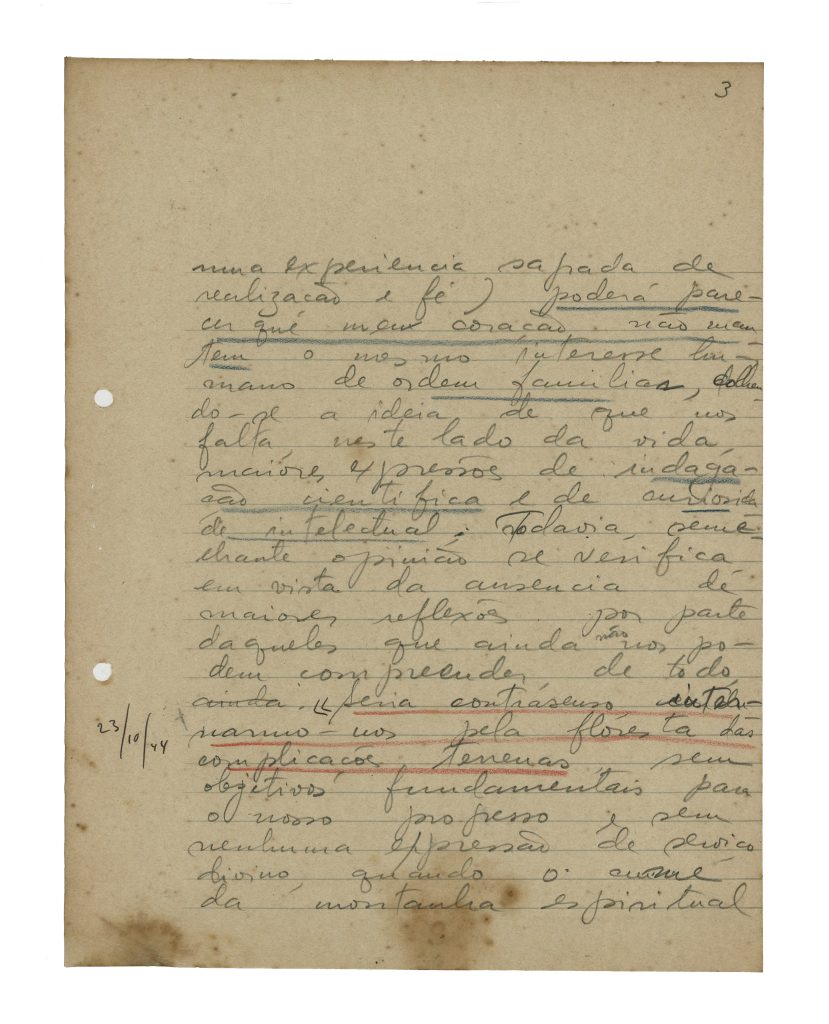 3
numa experiencia sagrada de
realização e fé) poderá pare-
cer qué meu coração não man
tem o mesmo interesse hu-
mano de ordem familiar, colhen
do-se a ideia de que nos
falta, neste lado da vida,
maióres expressões de indaga-
ção cientifica e de curiosida
de intelectual. Todavia, seme-
lhante opinião se verifica
em vista da ausencia de
maiores reflexões por parte
daqueles que ainda não nos po-
dem compreender de todo
ainda. "Seria contrásenso inter-
narmo-nos pela floresta das
23/10/44
complicações terrenas, sem
objetivos fundamentais para
o nosso progresso e sem
nenhuma expressão de serviço
divino, quando o cume
da montanha espiritual